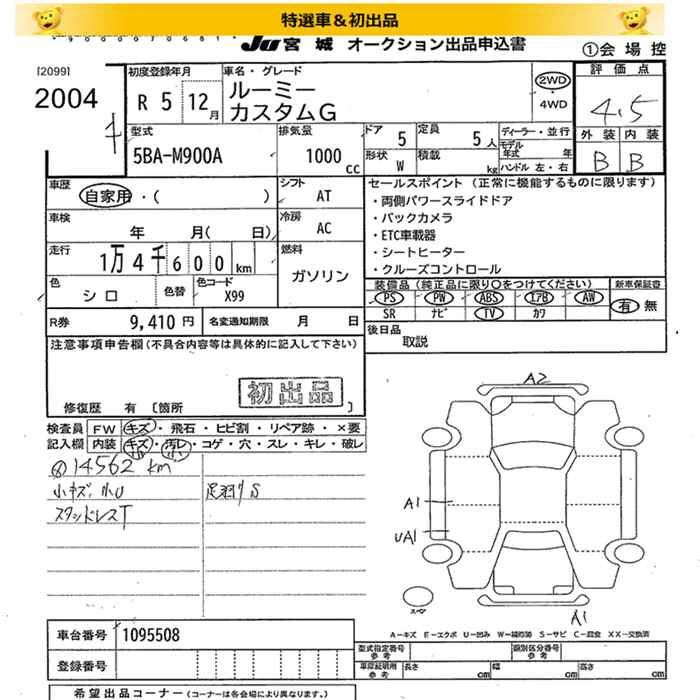 特選車＆初出品
JU宮城 オークション出品申込書
①会場控
[2099]
2004
初度登録年月
R 5 12月
車名・グレード
ルーミー
カスタムG
2WD
・
4WD
評価点
4.5
外装 内装
B B
型式
5BA-M900A
排気量
1000 cc
ドア 5
定員 5人
形状 W
積載 kg
ディーラー・並行
モデル年式 年
ハンドル 左・右
車歴
自家用・( )
シフト
AT
車検
年 月( 日)
冷房
AC
走行
1万4千600km
燃料
ガソリン
色
シロ
色替
色コード
X99
R券 9,410円
名変通知期限 月 日
セールスポイント（正常に機能するものに限ります）
・両側パワースライドドア
・バックカメラ
・ETC車載器
・シートヒーター
・クルーズコントロール
装備品（純正品に限り〇をつけてください）
PS PW ABS エアB AW
SR ナビ TV カワ
新車保証書
有 無
後日品
取説
注意事項申告欄（不具合内容等は具体的に記入して下さい）
初出品
修復歴 有〔箇所 〕
検査員
記入欄
FW キズ・飛石・ヒビ割・リペア跡・×要
内装 キズ・汚レ・コゲ・穴・スレ・キレ・破レ
14562 km
小キズ、小U
スタッドレスT
A2
A1
UA1
A1
A=キズ E=エクボ U=凹み W=補修跡 S=サビ C=腐食 XX=交換済
車台番号 1095508
登録番号
型式指定番号
参考
類別区分番号
参考
車庫証明用
参考
長さ cm 幅 cm 高さ cm
希望出品コーナー（コーナーは各会場により異なります。）